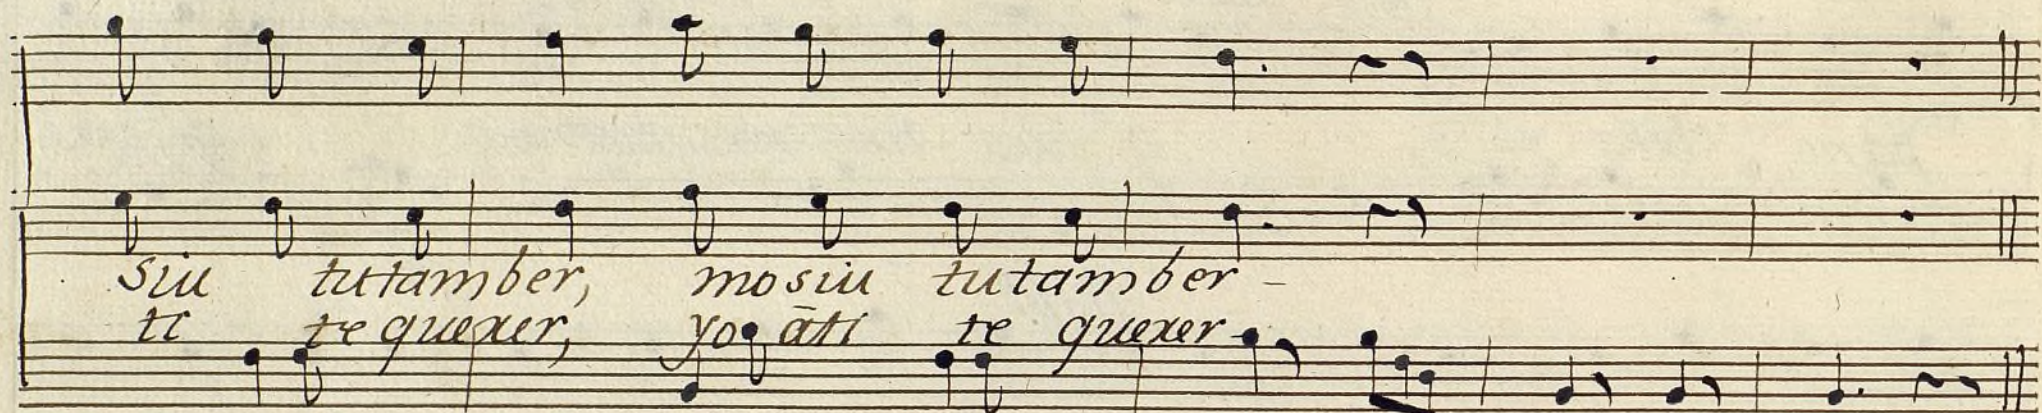 siu tutamber, mosiu tutamber -
ti te quexer, yo āti te quexer